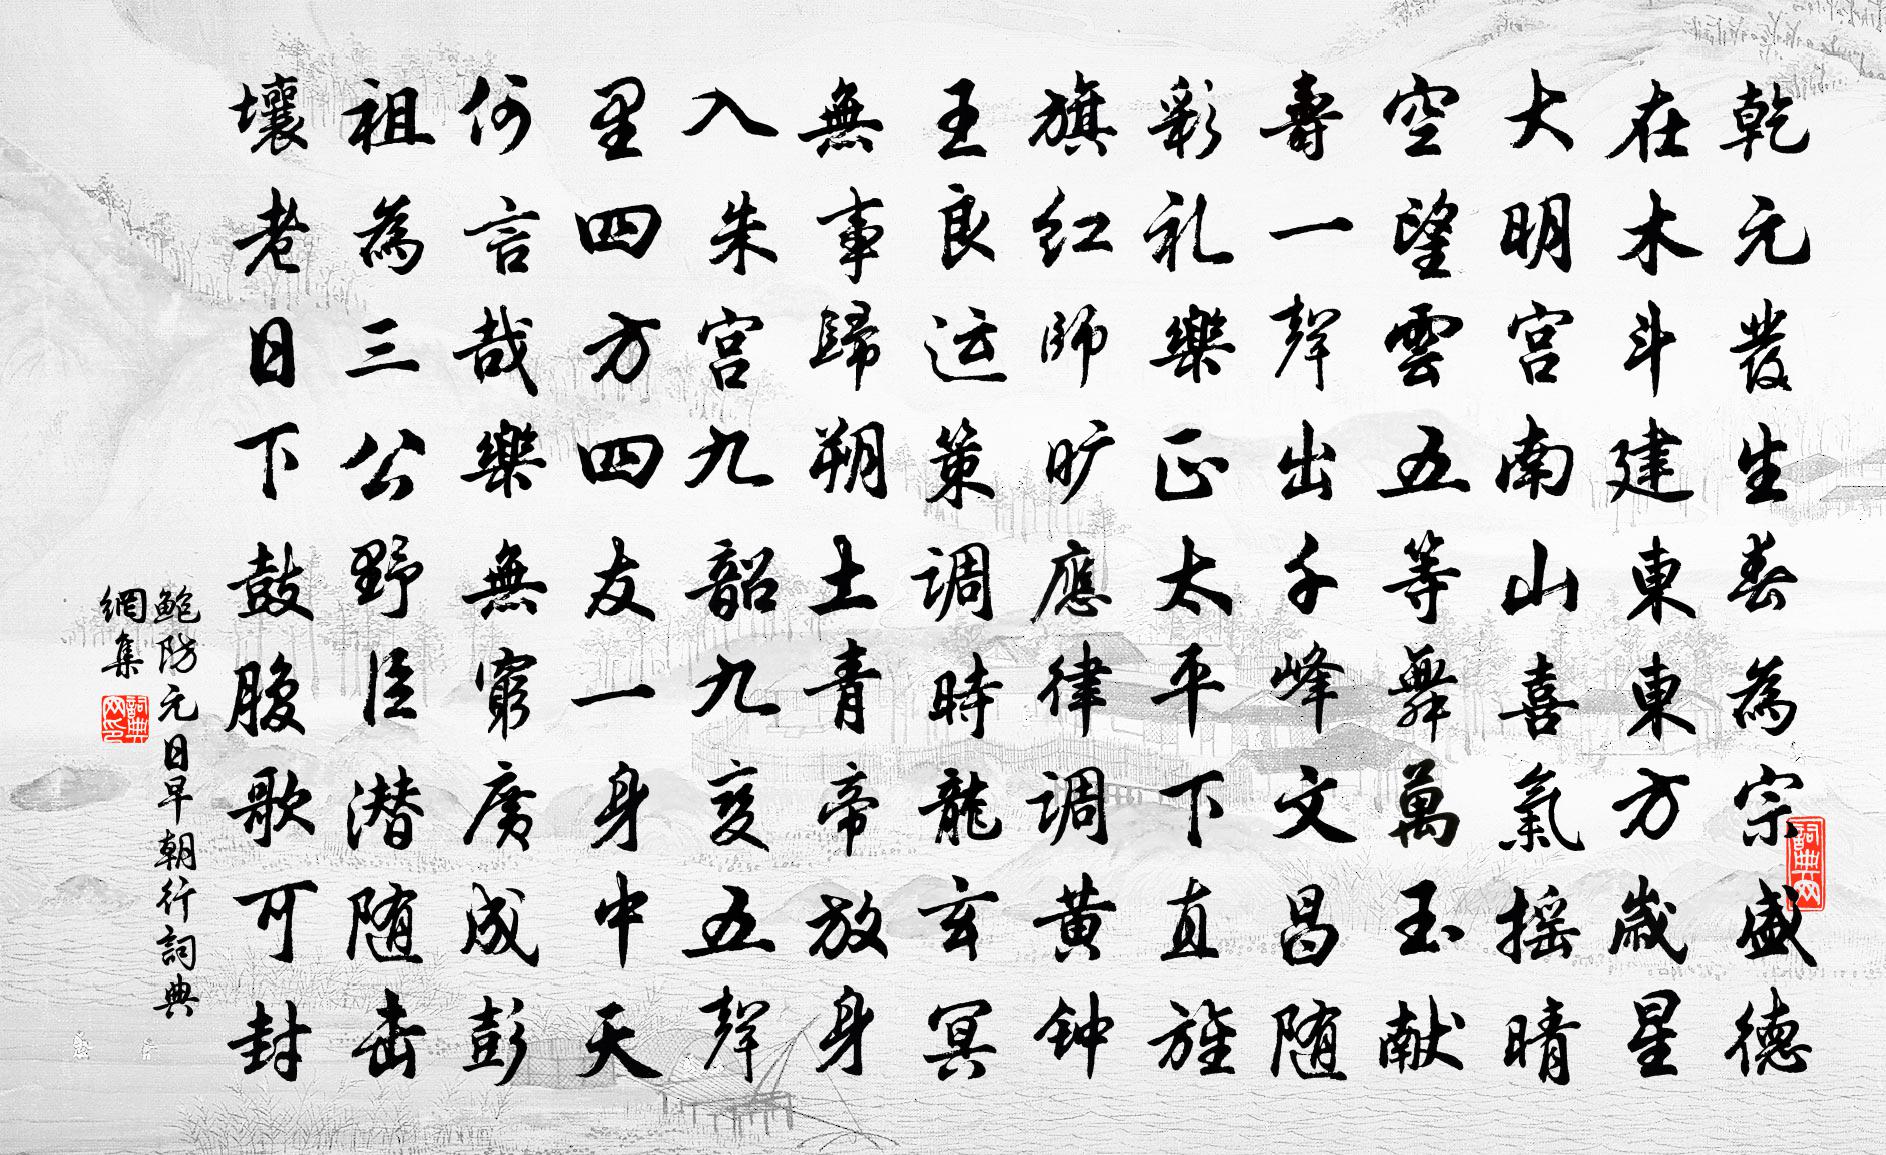 乾元發生春為宗盛德
在木斗建東東方歲星
大明宫南山喜氣摇晴
空望雲五等舞萬玉献
壽一聲出千峰文昌随
彩礼樂正太平下直旌
旗红師旷應律调黄钟
王良运策调時龍玄冥
無事歸朔土青帝放身
入朱宫九韶九变五聲
里四方四友一身中天
何言哉樂無窮廣成彭
祖為三公野臣潜随击
壤老日下鼓腹歌可封
鲍防元日早朝行詞典
網集
詞典网印
詞典网